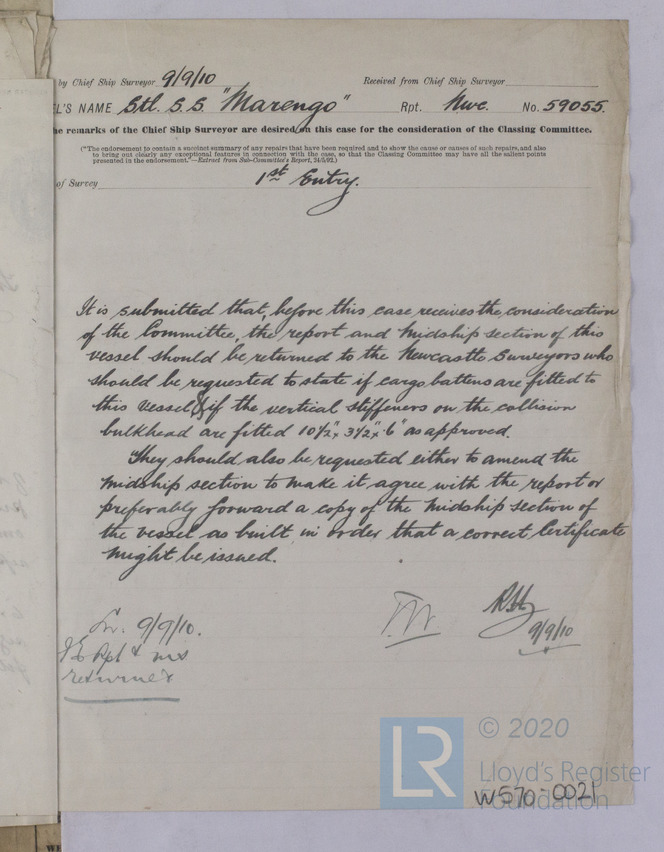 by Chief Ship Surveyor 9/9/10 Received from Chief Ship Surveyor
EL'S NAME Stl. S.S. "Marengo" Rpt. Nwc. No. 59055.
he remarks of the Chief Ship Surveyor are desired on this case for the consideration of the Classing Committee.
("The endorsement to contain a succinct summary of any repairs that have been required and to show the cause or causes of such repairs, and also
to bring out clearly any exceptional features in connection with the case, so that the Classing Committee may have all the salient points
presented in the endorsement."—Extract from Sub-Committee's Report, 24/5/92.)
of Survey 1st Entry.
It is submitted that, before this case receives the consideration
of the Committee, the report and midship section of this
vessel should be returned to the Newcastle Surveyors who
should be requested to state if cargo battens are fitted to
this vessel & if the vertical stiffeners on the collision
bulkhead are fitted 10½" x 3½" x .6" as approved.
They should also be requested either to amend the
midship section to make it agree with the report or
preferably forward a copy of the midship section of
the vessel as built in order that a correct Certificate
might be issued.
9/9/10.
Rpt & MS
returned
9/9/10
LR
© 2020
Lloyd's Register
Foundation
W570-0021